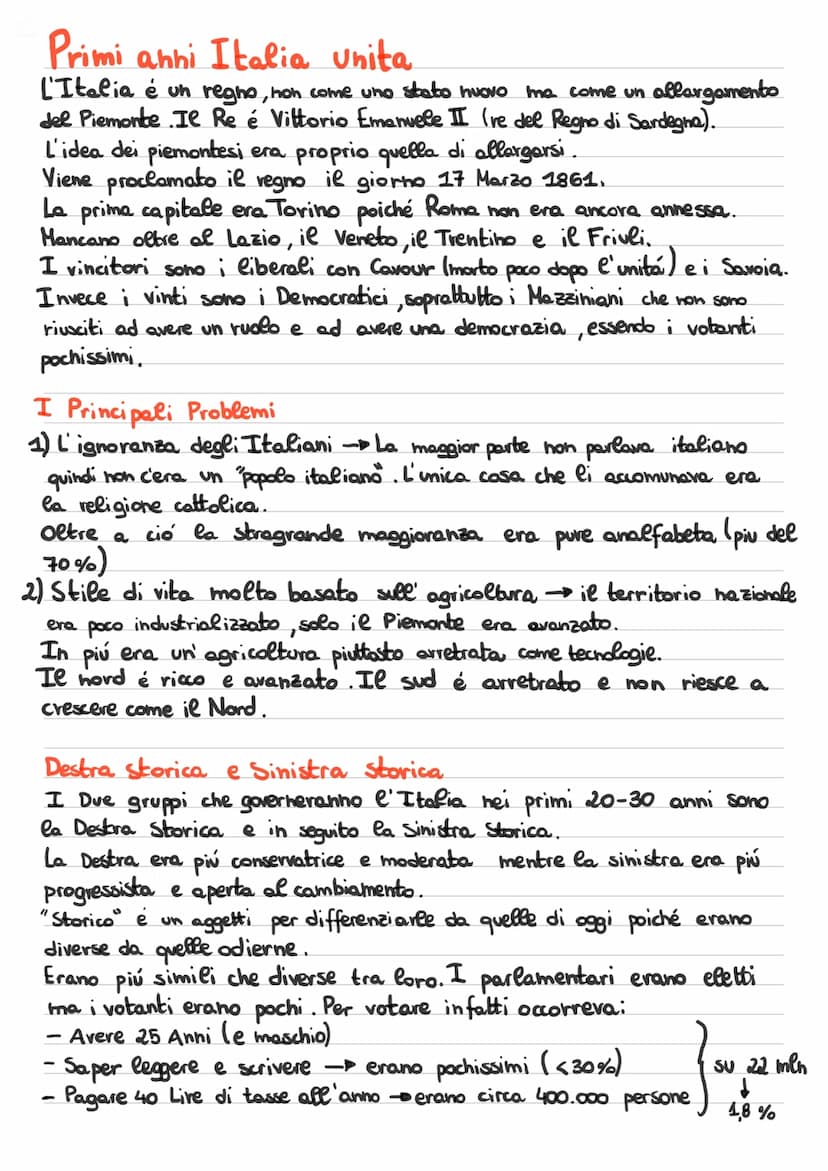 Primi anni Italia unita
L'Italia é un regno, non come uno stato nuovo ma come un allargamento
del Piemonte. Il Re é Vittorio Emanuele II (re del Regno di Sardegna).
L'idea dei piemontesi era proprio quella di allargarsi.
Viene proclamato il regno il giorno 17 Marzo 1861.
La prima capitale era Torino poiché Roma non era ancora annessa.
Mancano oltre al Lazio, il Veneto, il Trentino e il Friuli.
I vincitori sono i liberali con Cavour (morto poco dopo l'unitá) e i Savoia.
Invece i vinti sono i Democratici, soprattutto i Mazziniani che non sono
riusciti ad avere un ruolo e ad avere una democrazia, essendo i votanti
pochissimi.
I Principali Problemi
1) L'ignoranza degli Italiani → La maggior parte non parlava italiano
quindi non c'era un "popolo italiano". L'unica cosa che li accomunava era
la religione cattolica.
Oltre a ció la stragrande maggioranza era pure analfabeta (piu del
70%)
2) Stile di vita molto basato sull' agricoltura → il territorio nazionale
era poco industrializzato, solo il Piemonte era avanzato.
In piú era un' agricoltura piuttosto arretrata come tecnologie.
Il nord é ricco e avanzato. Il sud é arretrato e non riesce a
crescere come il Nord.
Destra storica e Sinistra Storica
I Due gruppi che governeranno l'Italia nei primi 20-30 anni sono
la Destra Storica e in seguito la Sinistra Storica.
La Destra era piú conservatrice e moderata mentre la sinistra era piú
progressista e aperta al cambiamento.
"Storico" é un aggetti per differenziarle da quelle di oggi poiché erano
diverse da quelle odierne.
Erano piú simili che diverse tra loro. I parlamentari erano eletti
ma i votanti erano pochi. Per votare infatti occorreva:
- Avere 25 Anni (e maschio)
- Saper leggere e scrivere → erano pochissimi (<30%)
- Pagare 40 Lire di tasse all'anno → erano circa 400.000 persone
su 22 mln
↓
1,8 %